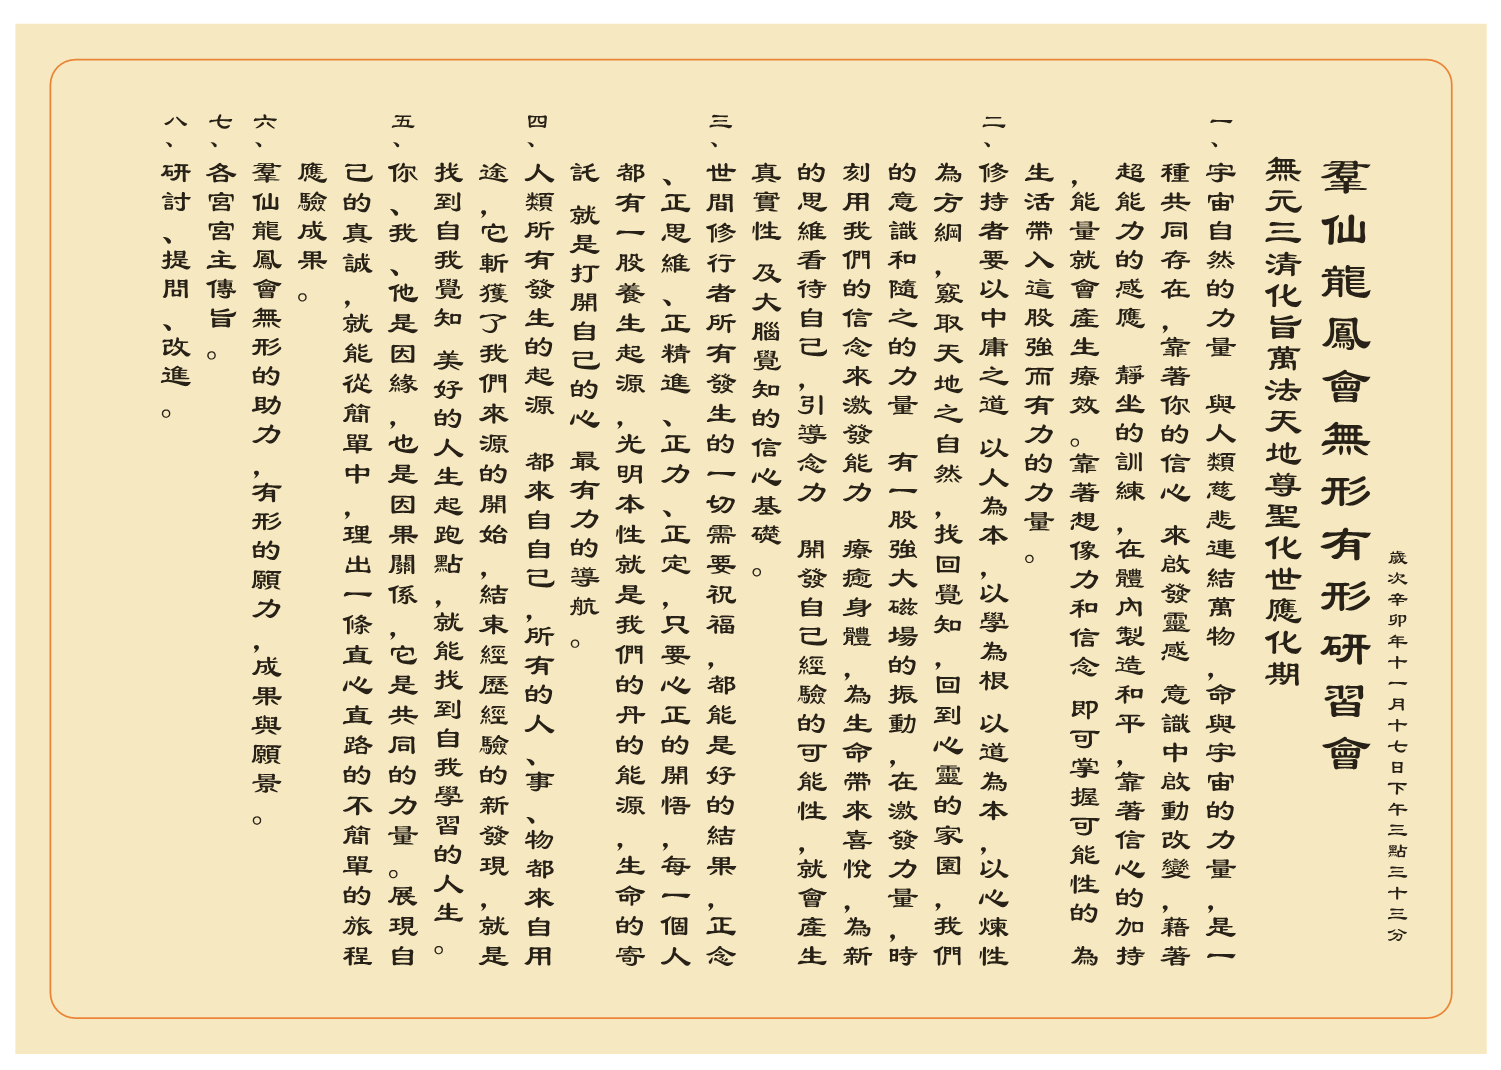 歲次辛卯年十一月十七日下午三點三十三分
羣仙龍鳳會無形有形研習會
無元三清化旨萬法天地尊聖化世應化期
一、宇宙自然的力量 與人類慈悲連結萬物,命與宇宙的力量,是一
種共同存在,靠著你的信心 來啟發靈感 意識中啟動改變,藉著
超能力的感應 靜坐的訓練,在體內製造和平,靠著信心的加持
,能量就會產生療效。靠著想像力和信念 即可掌握可能性的 為
生活帶入這股強而有力的力量。
二、修持者要以中庸之道 以人為本,以學為根 以道為本,以心煉性
為方綱,竅取天地之自然,找回覺知,回到心靈的家園,我們
的意識和隨之的力量 有一股強大磁場的振動,在激發力量,時
刻用我們的信念來激發能力 療癒身體,為生命帶來喜悅,為新
的思維看待自己,引導念力 開發自己經驗的可能性,就會產生
真實性 及大腦覺知的信心基礎。
三、世間修行者所有發生的一切需要祝福,都能是好的結果,正念
、正思維、正精進、正力、正定,只要心正的開悟,每一個人
都有一股養生起源,光明本性就是我們的丹的能源,生命的寄
託 就是打開自己的心 最有力的導航。
四、人類所有發生的起源 都來自自己,所有的人、事、物都來自用
途,它斬獲了我們來源的開始,結束經歷經驗的新發現,就是
找到自我覺知 美好的人生起跑點,就能找到自我學習的人生。
五、你、我、他是因緣,也是因果關係,它是共同的力量。展現自
己的真誠,就能從簡單中,理出一條直心直路的不簡單的旅程
應驗成果。
六、羣仙龍鳳會無形的助力,有形的願力,成果與願景。
七、各宮宮主傳旨。
八、研討、提問、改進。